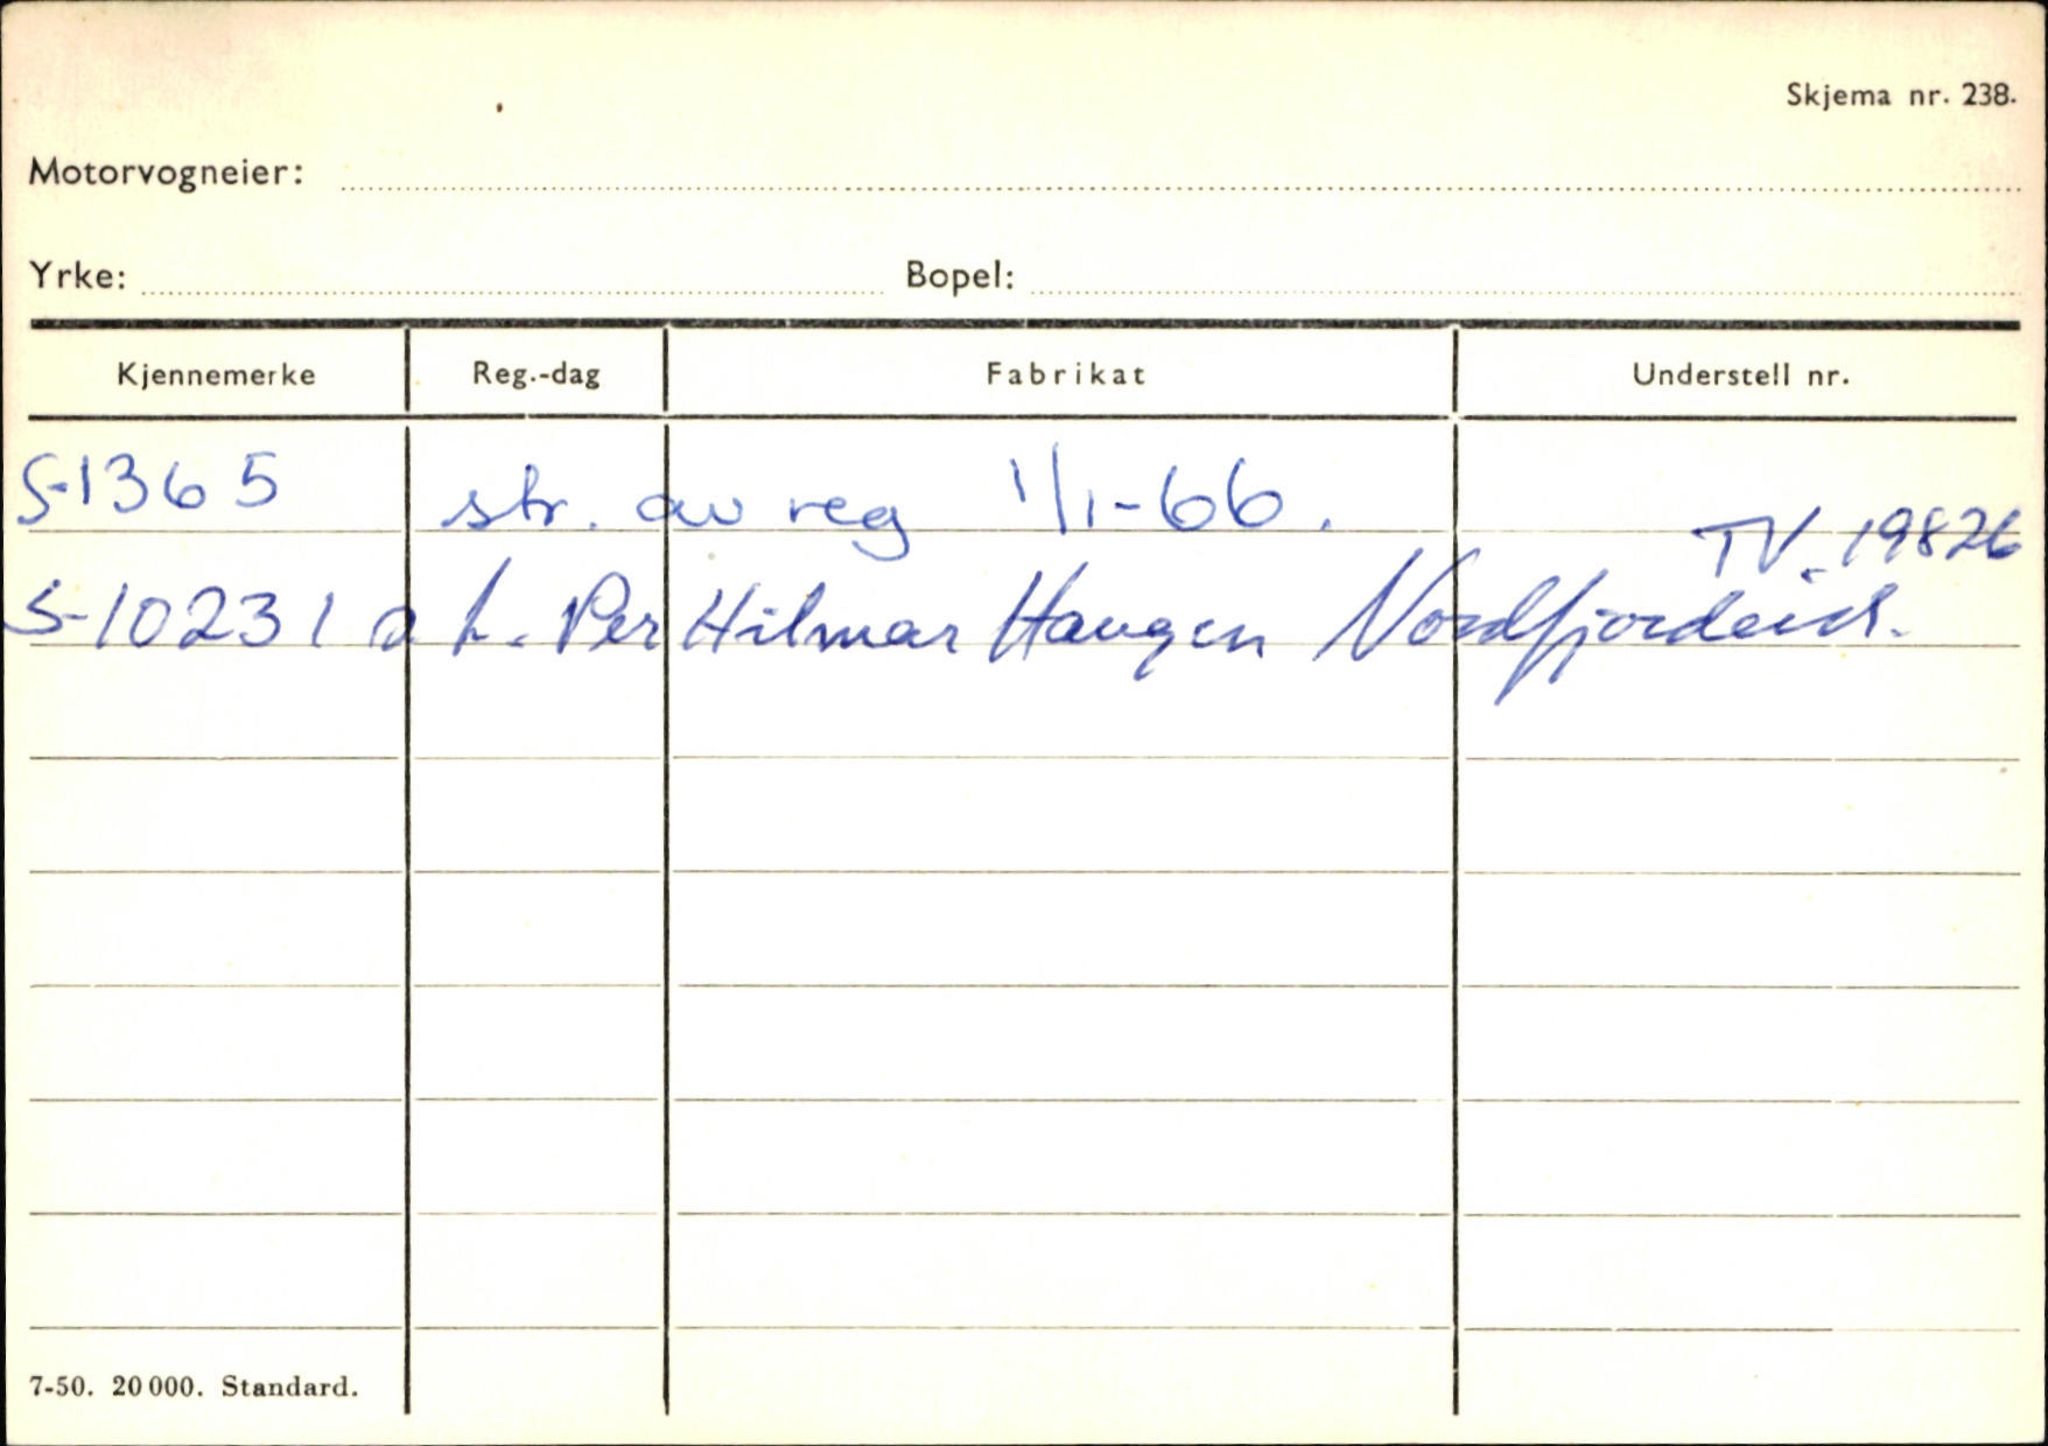 Skjema nr. 238.
Motorvogneier:
Yrke: Bopel:
Kjennemerke Reg.-dag Fabrikat Understell nr.
S-1365 str. av reg 1/1-66.
TV. 19826
S-10231 a t. Per Hilmar Haugen Nordfjordeid.
7-50. 20 000. Standard.